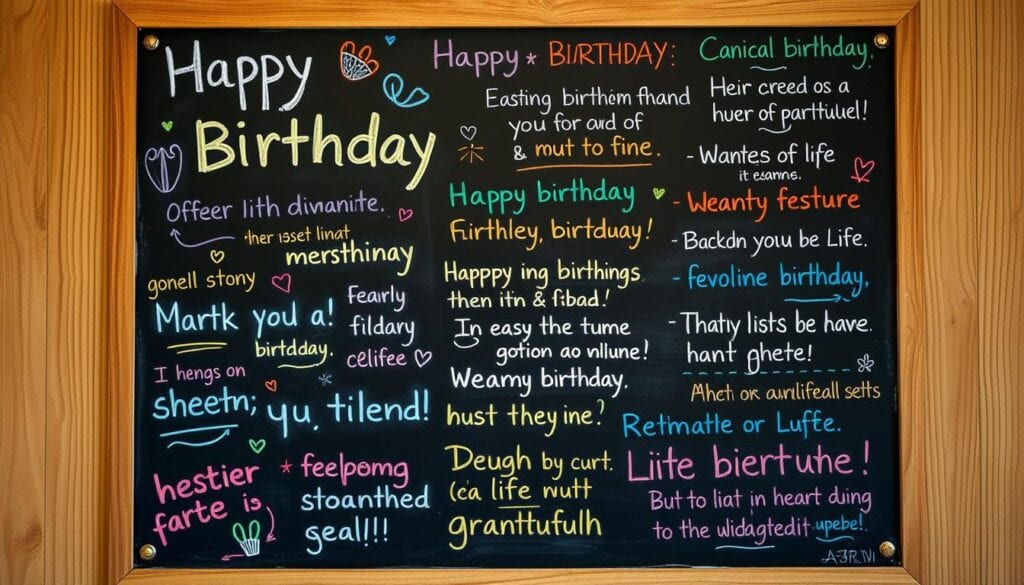 Happy
Birthday
Offeer lith divnanite.
ther isset linat
mersthinay
gonell stony
Martk you a!
birtdday.
Fearly
fildary
celifee
I hengs on
sheetn; yu, tilend!
hestier
farte is
* feelpomg
stoanthed
geal!!!
Happy * BIRTHDAY:
Easting birthim fhand
you for aud of
& mut to fine.
Happy birthday
Firthley, birtduay!
Happpy ing birthings
then itn & fibad!
In easy the tume
gotion ao vnllune!
Wearny birthday.
hust they ine?
Deugh by curt.
(ca life nutt
grantfufulh
Canical birthday.
Heir creed os a
huer of parttuluel!
- Wantes of life
it esamne.
- Weanty festure
- Backdn you be Life.
- fevoline birthday,
- Thatiy lists be have.
hant ghete!
Ahct ox aunlifeall setts
Retmatle or Luffe.
Liite biertuhe!
But to liat in heart diing
to the widagtedit upebe!.